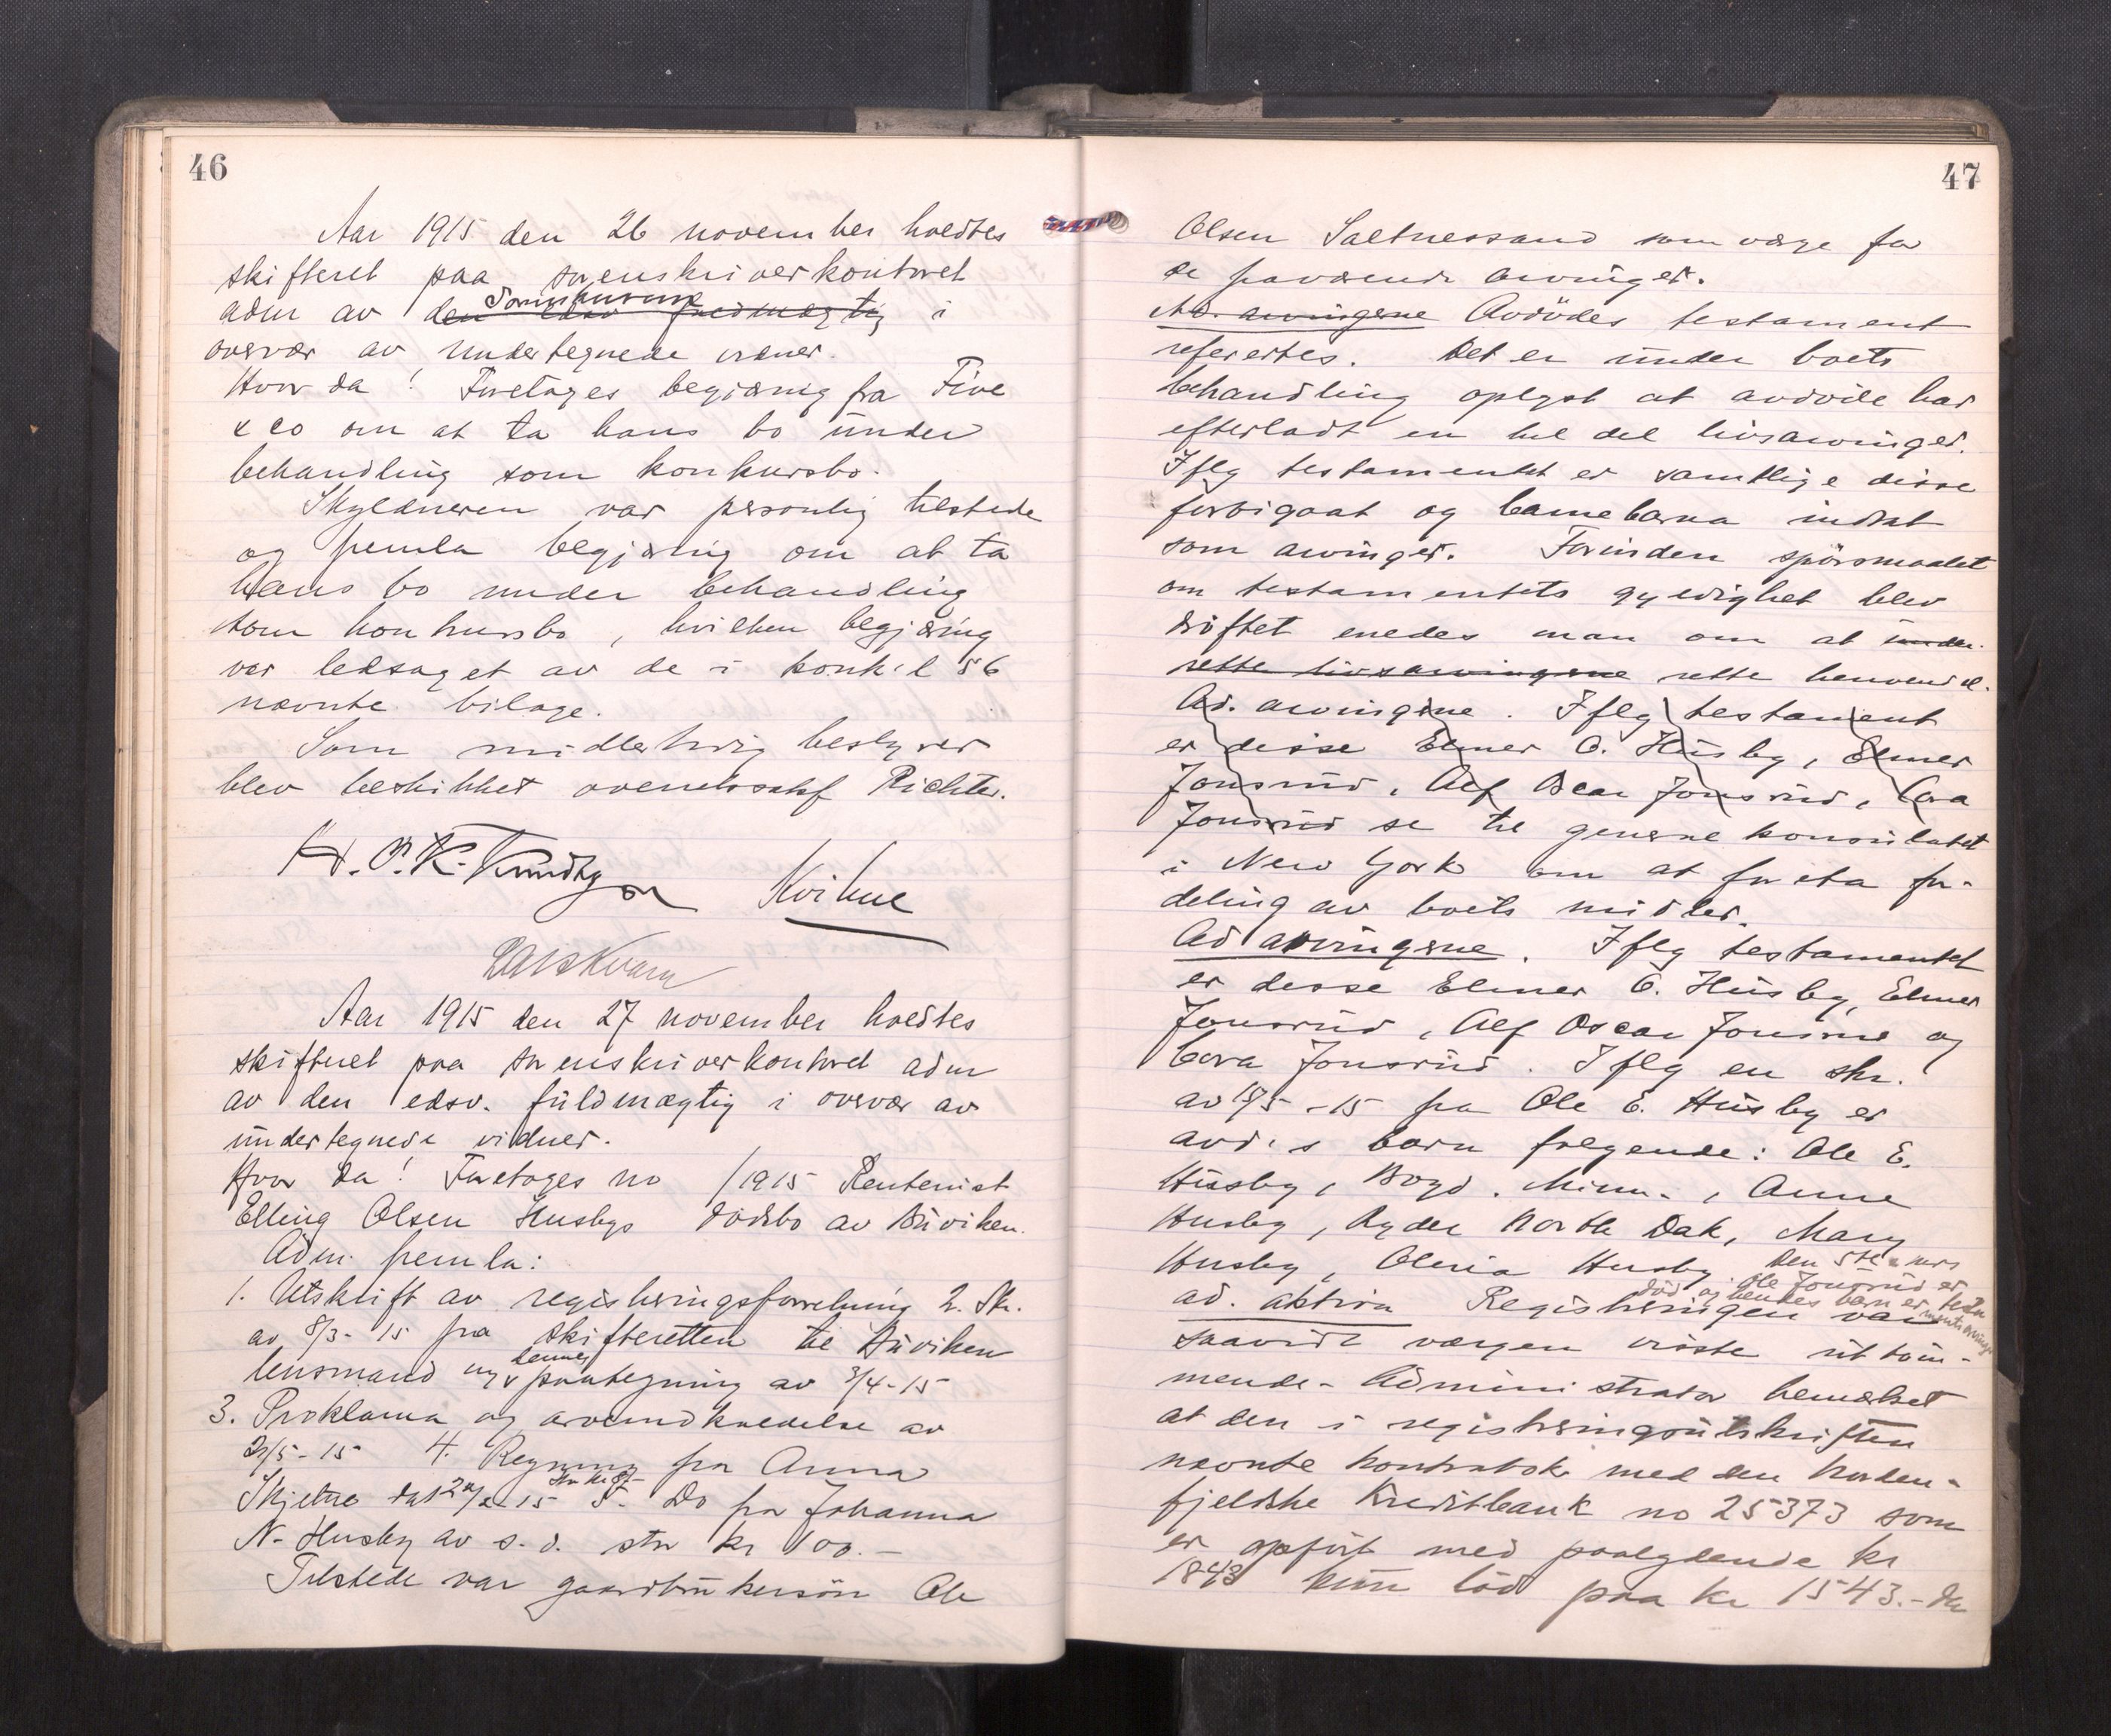 46
Aar 1915 den 26 november holdtes
skifteret paa sorenskriverkontoret
adm av den edsv fuldmægtig i
overvær av undertegnede vidner.
Hvor da! Foretages begjæring fra Five
& co om at ta hans bo under
behandling som konkursbo.
Skyldneren var personlig tilstede
og fremla begjæring om at ta
hans bo under behandling
som konkursbo, hvilken begjæring
var ledsaget av de i konk.l § 6
nævnte bilage.
Som midlertidig bestyrer
blev beskikket overretssakf Richter.
H. P. K. Knudtzon Kvikne
Lars Kvam
Aar 1915 den 27 november holdtes
skifteret paa sorenskriverkontoret adm
av den edsv. fuldmægtig i overvær av
undertegnede vidner.
Hvor da! Foretages no /1915 Rentenist
Elling Olsen Husbys dödsbo av Buviken.
Adm. fremla:
1. Utskrift av registreringsforretning 2. Skr.
av 8/3-15 fra skifteretten til Buviken
lensmand og dennes paategning av 3/4-15
3. Proklama og arveindkaldelse av
21/5-15 4. Regning fra Anna
Skjetne dat 15 5. Do fra Johanna
N. Husby av s. d. stor kr 100.-
Tilstede var gaardbrukersön Ole
47
Olsen Saltnessand som værge for
de fraværende arvinger.
Ad. arvingerne Avdödes testament
refertes. Det er under boets
behandling oplyst at avdöde har
efterladt en hel del livsarvinger.
Iflg testamentet er samtlige disse
forbigaat og barnebarna indsat
som arvinger. Forinden spörsmaalet
om testamentets gyldighet blev
dröftet enedes man om at under-
rette livsarvingerne rette henvendel-
Ad. arvingerne. Iflg testament
er disse Elmer O. Husby, Elmer
Jonsrud, Alf Oscar Jonsrud, Cora
Jonsrud se til generalkonsulatet
i New York om at foreta for-
deling av boets midler.
Ad arvingerne. Iflg testamentet
er disse Elmer O. Husby, Elmer
Jonsrud, Alf Oscar Jonsrud og
Cora Jonsrud. Iflg en skr.
av 18/5-15 fra Ole E. Husby er
avd.s barn fölgende: Ole E.
Husby, Boyd. Minn., Anne
Husby, Ryder North Dak, Mary
Husby, Oleria Husby. Den 5te mrs
Ole Jonsrud er
död og hendes barn er testa
mentsarvinger
ad. aktiva Registreringen var
saavidt værgen visste uttöm-
mende. Administrator bemerket
at den i registreringsutskriften
nævnte kontrabok med den Norden-
fjeldske Kreditbank no 25373 som
er opfört med paalydende kr
1843 kun löd paa kr 1543.- De